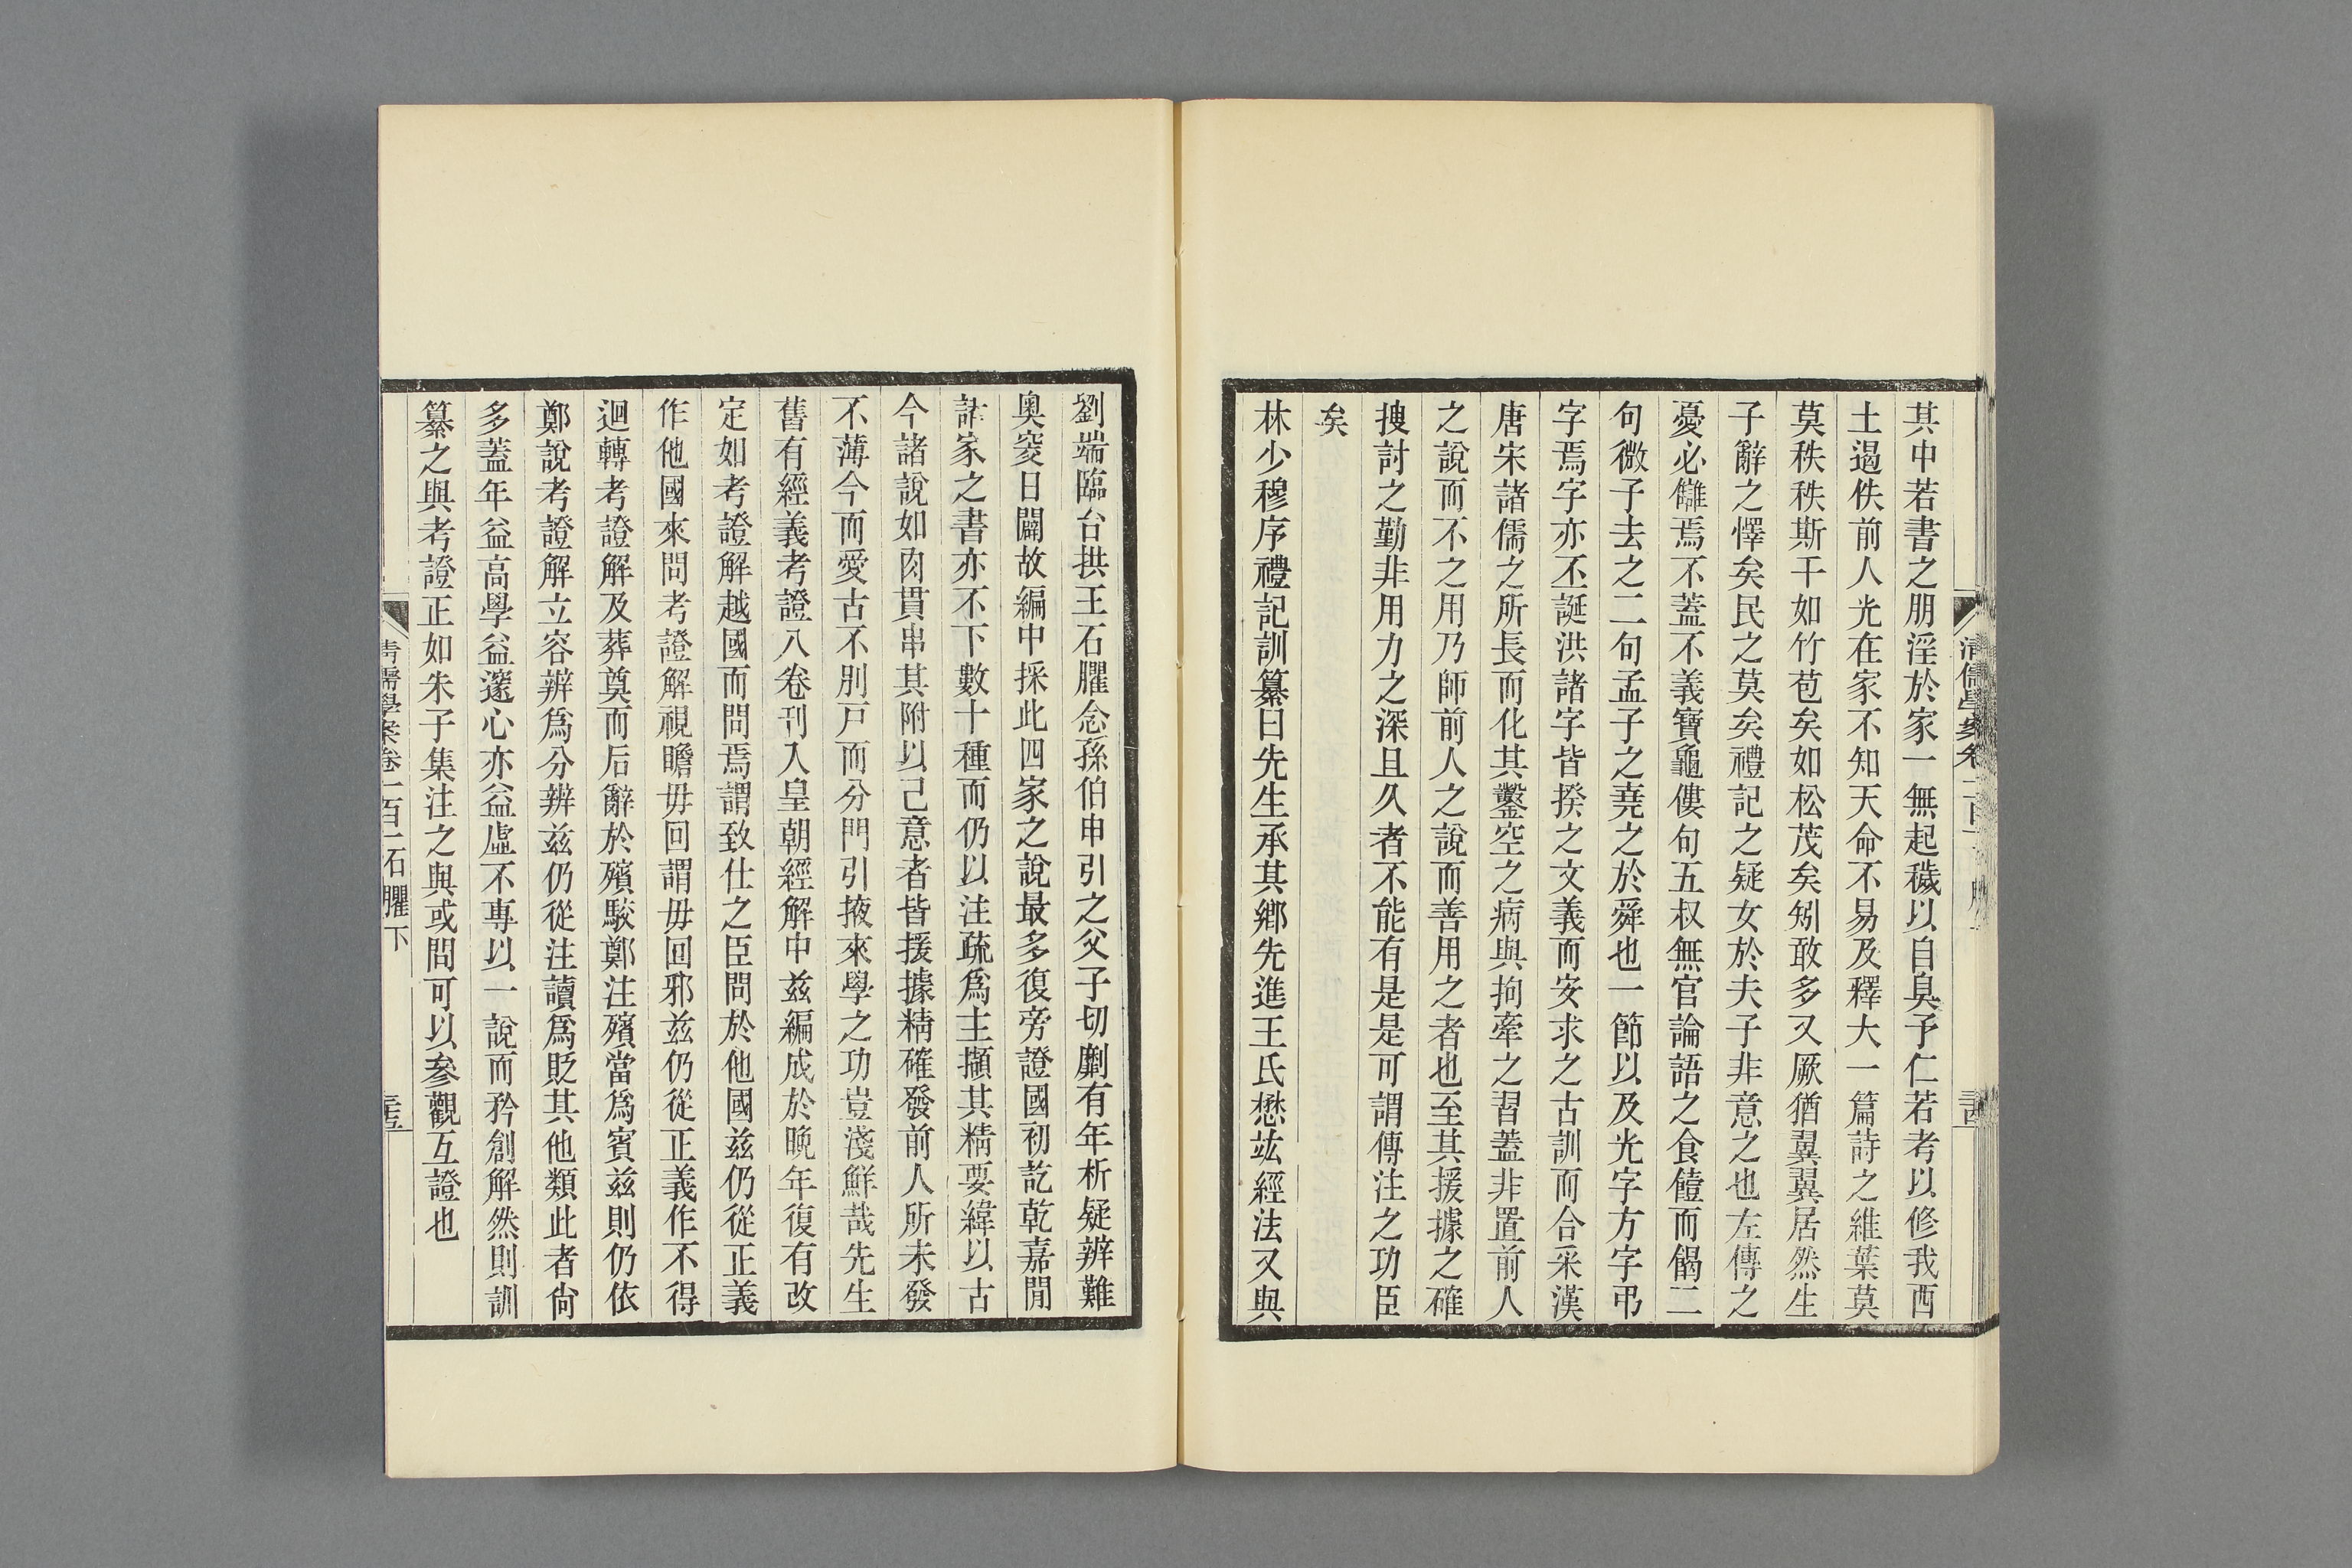 其中若書之朋淫於家一無起穢以自臭予仁若考以修我西
土遏佚前人光在家不知天命不易及釋大一篇詩之維葉莫
莫秩秩斯干如竹苞矣如松茂矣矧敢多又厥猶翼翼居然生
子辭之懌矣民之莫矣禮記之疑女於夫子非意之也左傳之
憂必讎焉不蓋不義寶龜僂句五叔無官論語之食饐而餲二
句微子去之二句孟子之堯之於舜也一節以及光字方字弔
字焉字亦丕誕洪諸字皆揆之文義而安求之古訓而合采漢
唐宋諸儒之所長而化其鑿空之病與拘牽之習蓋非置前人
之說而不之用乃師前人之說而善用之者也至其援據之確
搜討之勤非用力之深且久者不能有是是可謂傳注之功臣
矣
林少穆序禮記訓纂曰先生承其鄉先進王氏懋竑經法又與
劉端臨台拱王石臞念孫伯申引之父子切劘有年析疑辨難
奧窔日闢故編中採此四家之說最多復旁證國初訖乾嘉閒
諸家之書亦不下數十種而仍以注疏爲主擷其精要緯以古
今諸說如肉貫串其附以己意者皆援據精確發前人所未發
不薄今而愛古不別戸而分門引掖來學之功豈淺鮮哉先生
舊有經義考證八卷刊入皇朝經解中茲編成於晚年復有改
定如考證解越國而問焉謂致仕之臣問於他國茲仍從正義
作他國來問考證解視瞻毋回謂毋回邪茲仍從正義作不得
迴轉考證解及葬奠而后辭於殯駁鄭注殯當爲賓茲則仍依
鄭說考證解立容辨爲分辨茲仍從注讀爲貶其他類此者尙
多蓋年益高學益邃心亦益虛不專以一說而矜創解然則訓
纂之與考證正如朱子集注之與或問可以參觀互證也
清儒學案卷一百一石臞下
三五